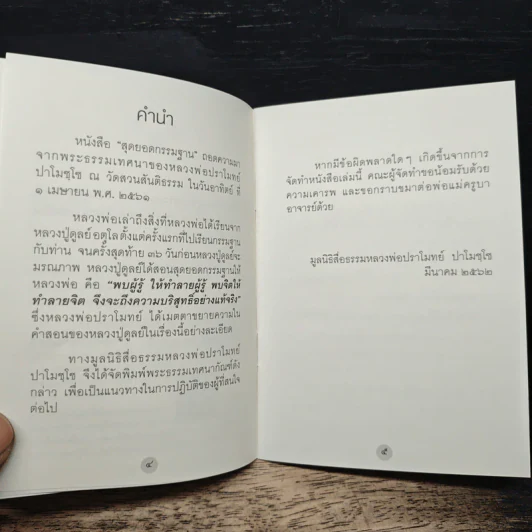 คำนำ
หนังสือ "สุดยอดกรรมฐาน" ถอดความมา
จากพระธรรมเทศนาของหลวงพ่อปราโมทย์
ปาโมชฺโช ณ วัดสวนสันติธรรม ในวันอาทิตย์ ที่
๑ เมษายน พ.ศ. ๒๕๖๑
หลวงพ่อเล่าถึงสิ่งที่หลวงพ่อได้เรียนจาก
หลวงปู่ดูลย์ อตุโล ตั้งแต่ครั้งแรกที่ไปเรียนกรรมฐาน
กับท่าน จนครั้งสุดท้าย ๓๖ วันก่อนหลวงปู่ดูลย์จะ
มรณภาพ หลวงปู่ดูลย์ได้สอนสุดยอดกรรมฐานให้
หลวงพ่อ คือ "พบผู้รู้ ให้ทำลายผู้รู้ พบจิตให้
ทำลายจิต จึงจะถึงความบริสุทธิ์อย่างแท้จริง"
ซึ่งหลวงพ่อปราโมทย์ ได้เมตตาขยายความใน
คำสอนของหลวงปู่ดูลย์ในเรื่องนี้อย่างละเอียด
ทางมูลนิธิสื่อธรรมหลวงพ่อปราโมทย์
ปาโมชฺโช จึงได้จัดพิมพ์พระธรรมเทศนากัณฑ์ดัง
กล่าว เพื่อเป็นแนวทางในการปฏิบัติของผู้ที่สนใจ
ต่อไป
๔
หากมีข้อผิดพลาดใด ๆ เกิดขึ้นจากการ
จัดทำหนังสือเล่มนี้ คณะผู้จัดทำขอน้อมรับด้วย
ความเคารพ และขอกราบขมาต่อพ่อแม่ครูบา
อาจารย์ด้วย
มูลนิธิสื่อธรรมหลวงพ่อปราโมทย์ ปาโมชฺโช
มีนาคม ๒๕๖๒
๕